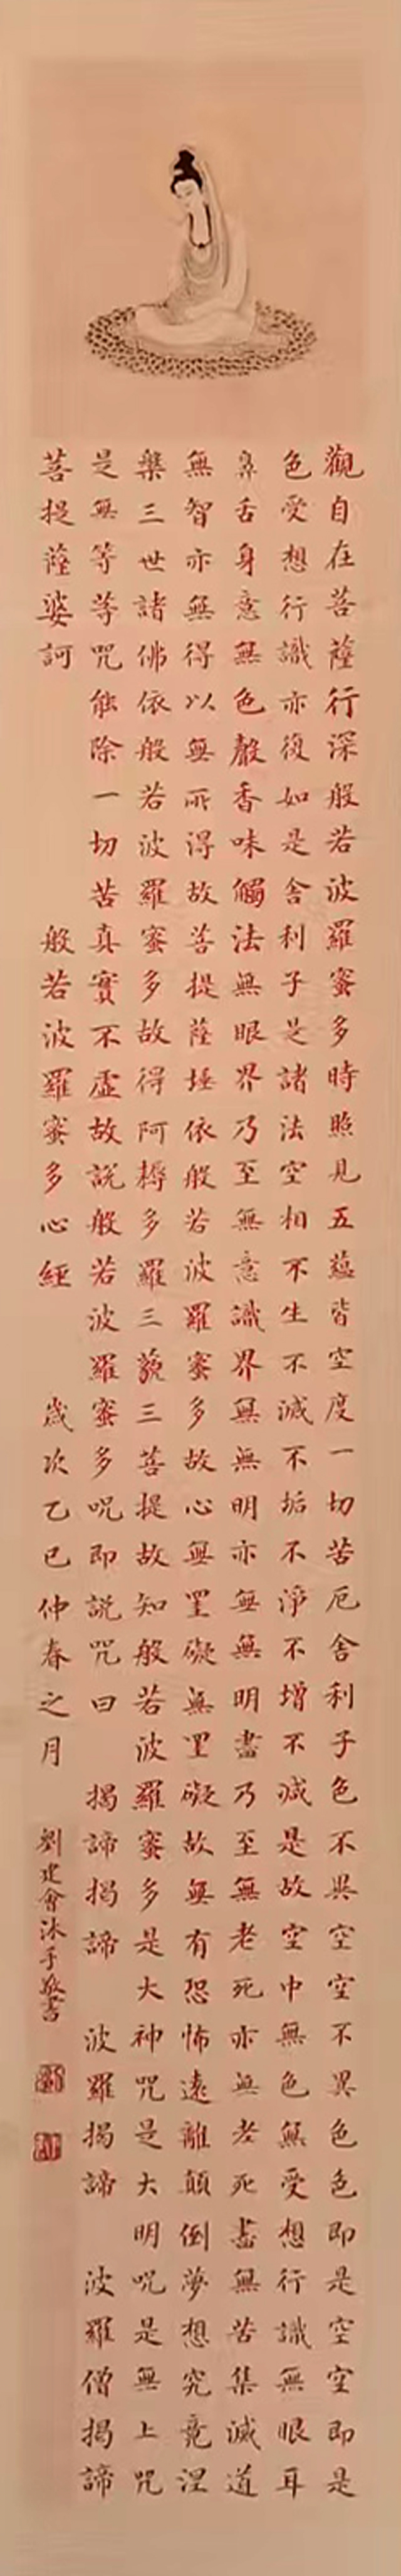 觀自在菩薩行深般若波羅蜜多時照見五蘊皆空度一切苦厄舍利子色不異空空不異色色即是空空即是
色受想行識亦復如是舍利子是諸法空相不生不滅不垢不淨不增不減是故空中無色無受想行識無眼耳
鼻舌身意無色聲香味觸法無眼界乃至無意識界無無明亦無無明盡乃至無老死亦無老死盡無苦集滅道
無智亦無得以無所得故菩提薩埵依般若波羅蜜多故心無罣礙無罣礙故無有恐怖遠離顛倒夢想究竟涅
槃三世諸佛依般若波羅蜜多故得阿耨多羅三藐三菩提故知般若波羅蜜多是大神咒是大明咒是無上咒
是無等等咒能除一切苦真實不虛故說般若波羅蜜多咒即說咒曰 揭諦揭諦 波羅揭諦 波羅僧揭諦
菩提薩婆訶 般若波羅蜜多心經 歲次乙巳仲春之月 劉建會沐手敬書